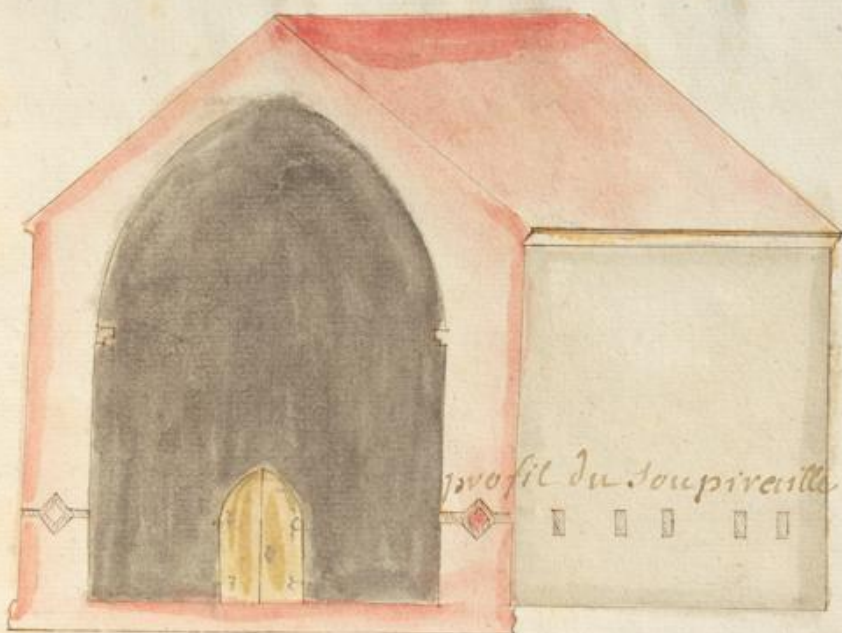 profil du soupiraille